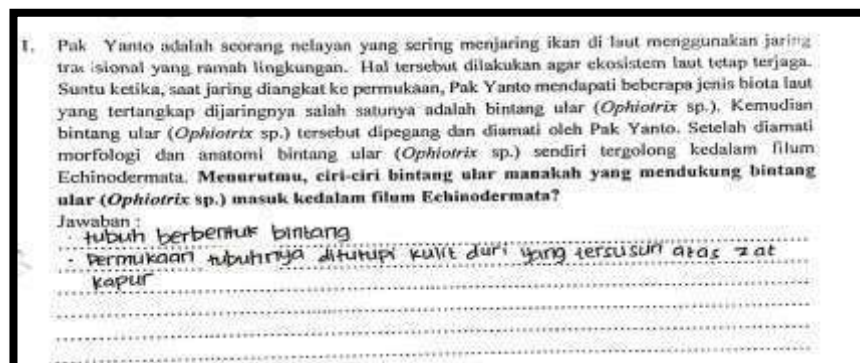 1. Pak Yanto adalah seorang nelayan yang sering menjaring ikan di laut menggunakan jaring
tradisional yang ramah lingkungan. Hal tersebut dilakukan agar ekosistem laut tetap terjaga.
Suatu ketika, saat jaring diangkat ke permukaan, Pak Yanto mendapati beberapa jenis biota laut
yang tertangkap dijaringnya salah satunya adalah bintang ular (Ophiotrix sp.). Kemudian
bintang ular (Ophiotrix sp.) tersebut dipegang dan diamati oleh Pak Yanto. Setelah diamati
morfologi dan anatomi bintang ular (Ophiotrix sp.) sendiri tergolong kedalam filum
Echinodermata. Menurutmu, ciri-ciri bintang ular manakah yang mendukung bintang
ular (Ophiotrix sp.) masuk kedalam filum Echinodermata?
Jawaban :
· tubuh berbentuk bintang
- Permukaan tubuhnya ditutupi kulit duri yang tersusun atas zat
kapur